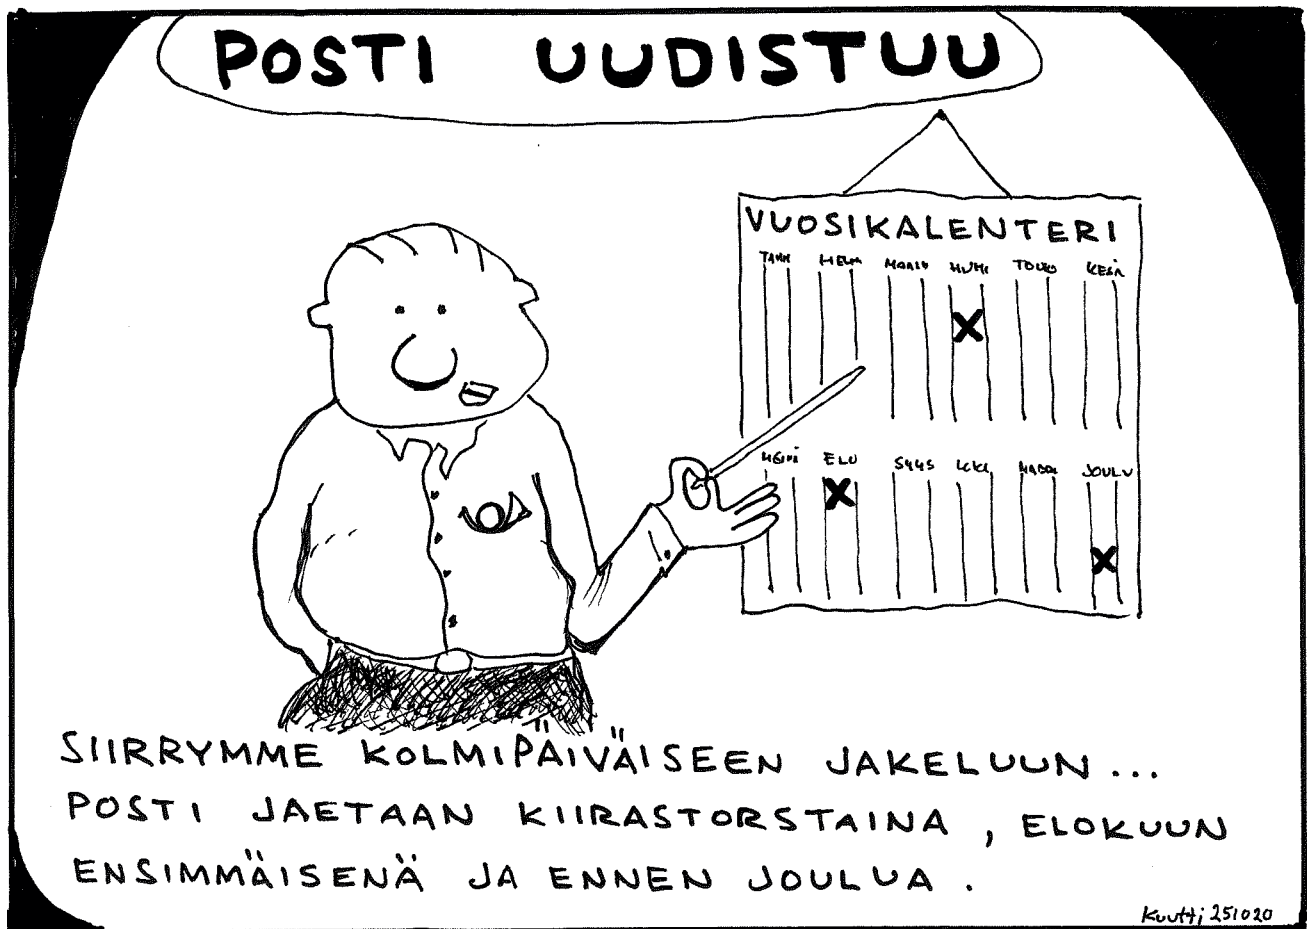 POSTI UUDISTUU
VUOSIKALENTERI
TAMM HELM MAALIS HUHTI TOUKO KESÄ
HEINÄ ELO SYYS LOKA MARRAS JOULU
SIIRRYMME KOLMIPÄIVÄISEEN JAKELUUN...
POSTI JAETAAN KIIRASTORSTAINA, ELOKUUN
ENSIMMÄISENÄ JA ENNEN JOULUA.
Kuutti 251020